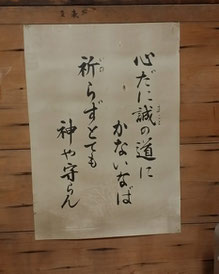 心だに誠の道に
かないなば
祈らずとても
神や守らん